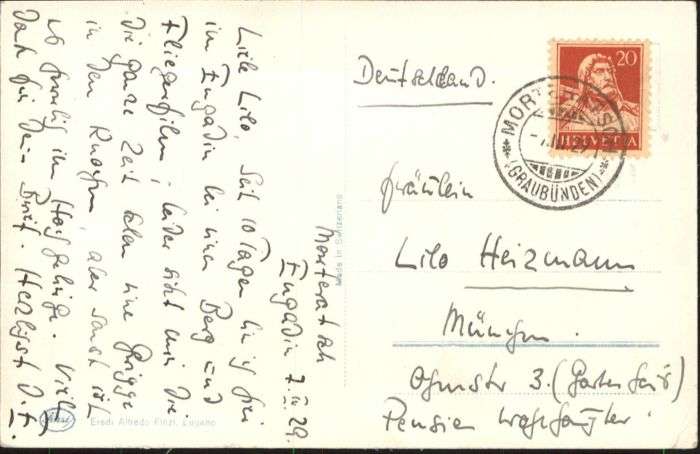 Morteratsch
Engadin 7. IV. 29.
Liebe Lilo, seit 10 Tagen bin ich hier
im Engadin bei einem Berg und
Fliegerfilm; leider sitzt mir die
die ganze Zeit schon eine Grippe
in den Knochen, aber sonst ist
es herrlich im Hochgebirge. Vielen
Dank für Dein Brief. Herzligst
Made in Switzerland
Eredi Alfredo Finzi, Lugano
Deutschland.
20
HELVETIA
MORTERATSCH
(GRAUBÜNDEN)
Fräulein
Lilo Heizmann
München.
Ohmstr 3. (Gartenhaus)
Pension